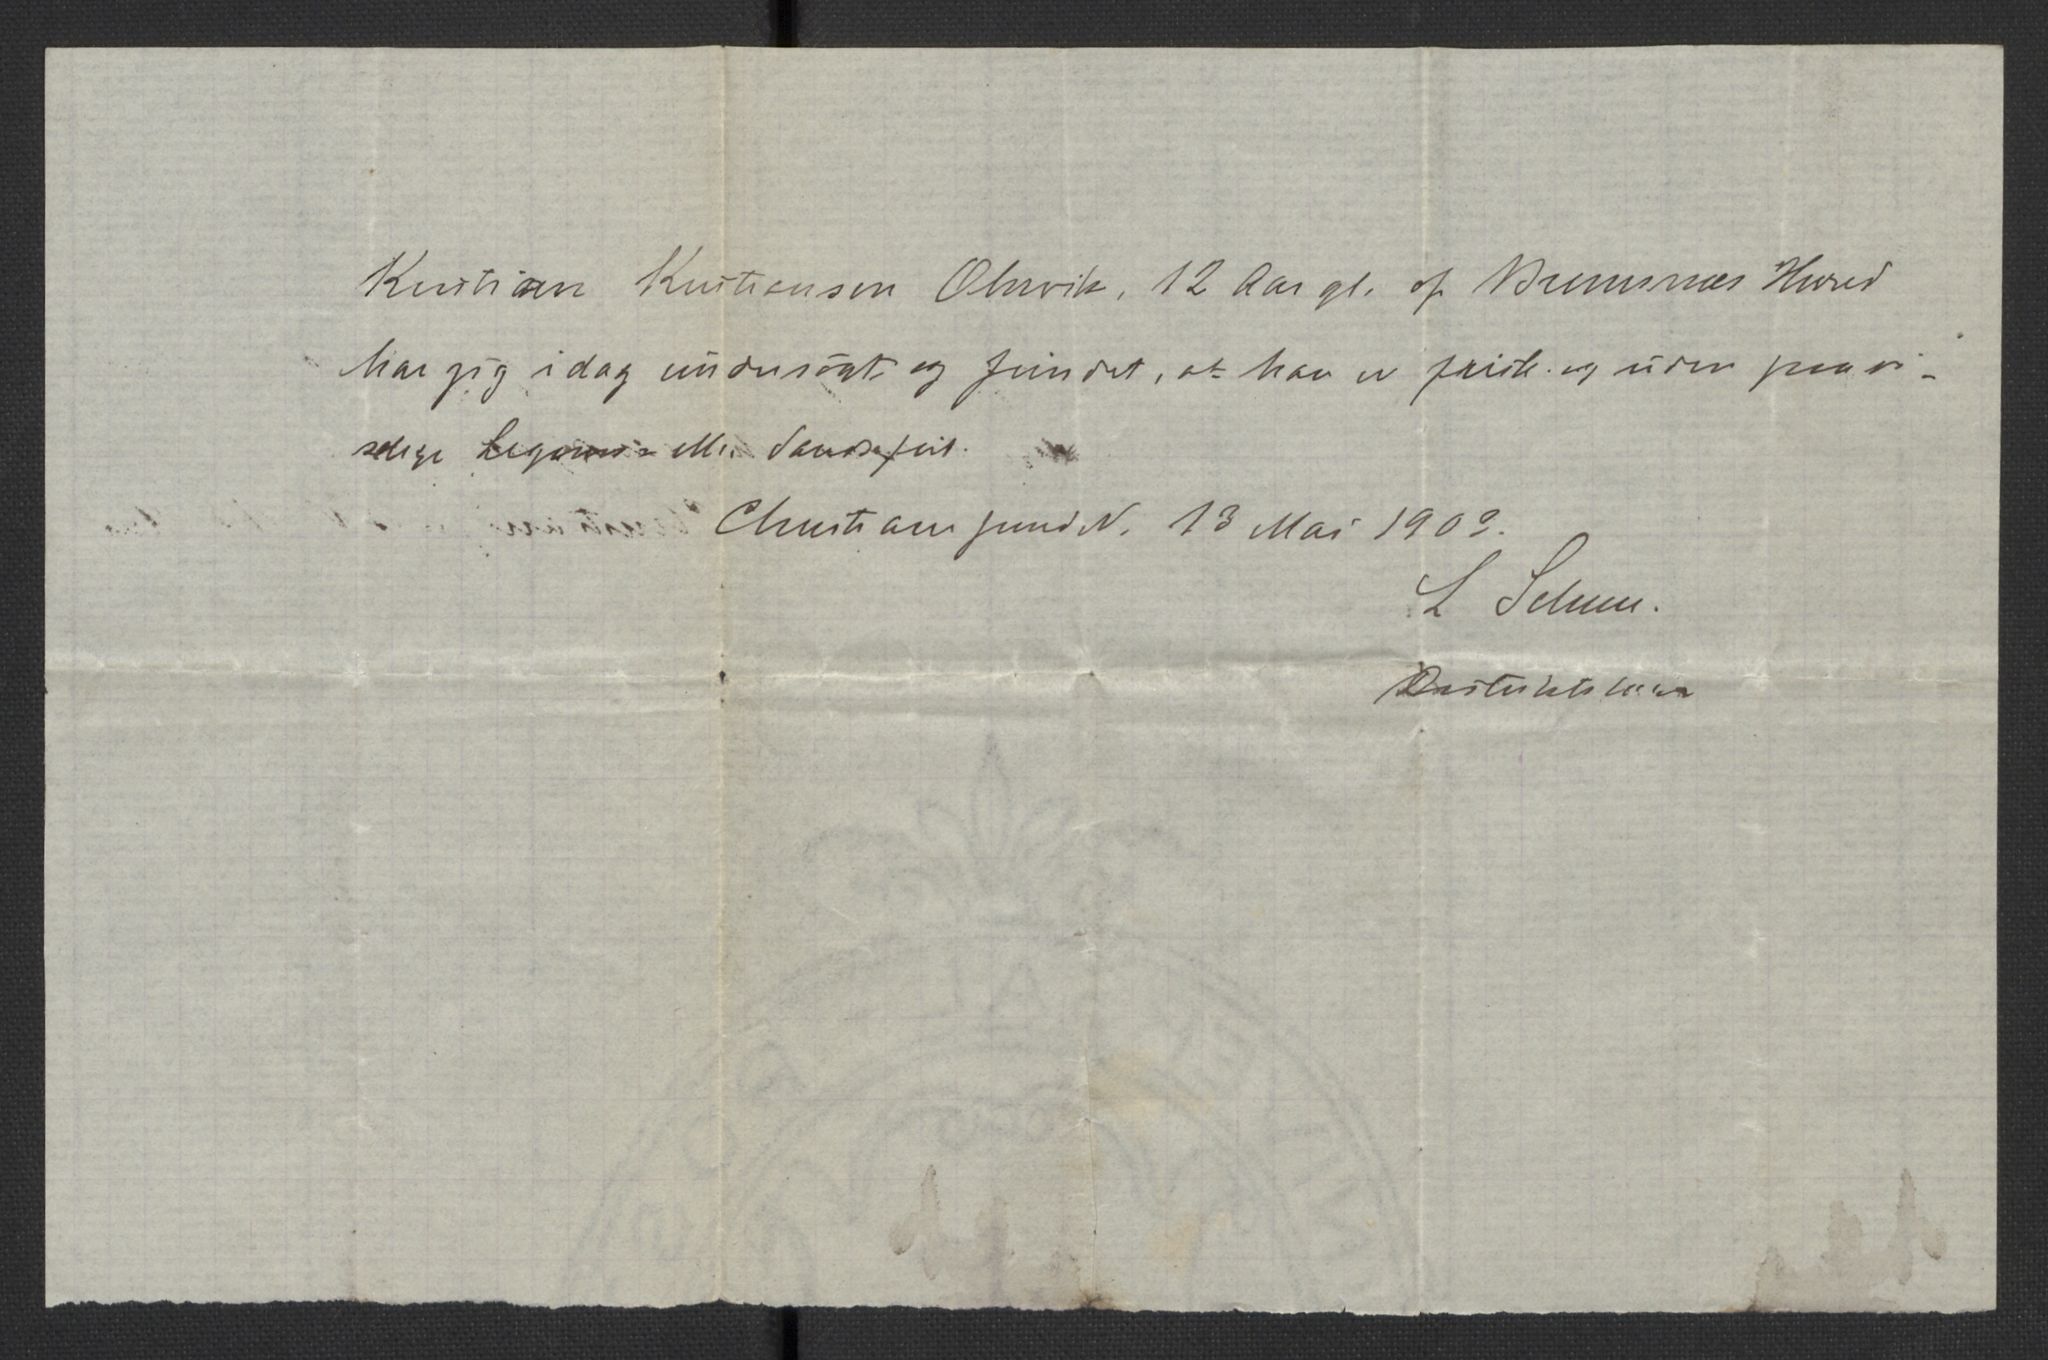 Kristian Kristiansen Olsvik, 12 Aar gl. af Bremsnæs Herred
har jeg i dag undersøgt og fundet, at han er frisk og uden paavi-
selige Legems- ell. Sandsefeil.
Christianssund N. 13 Mai 1903.
L
Distriktslæge